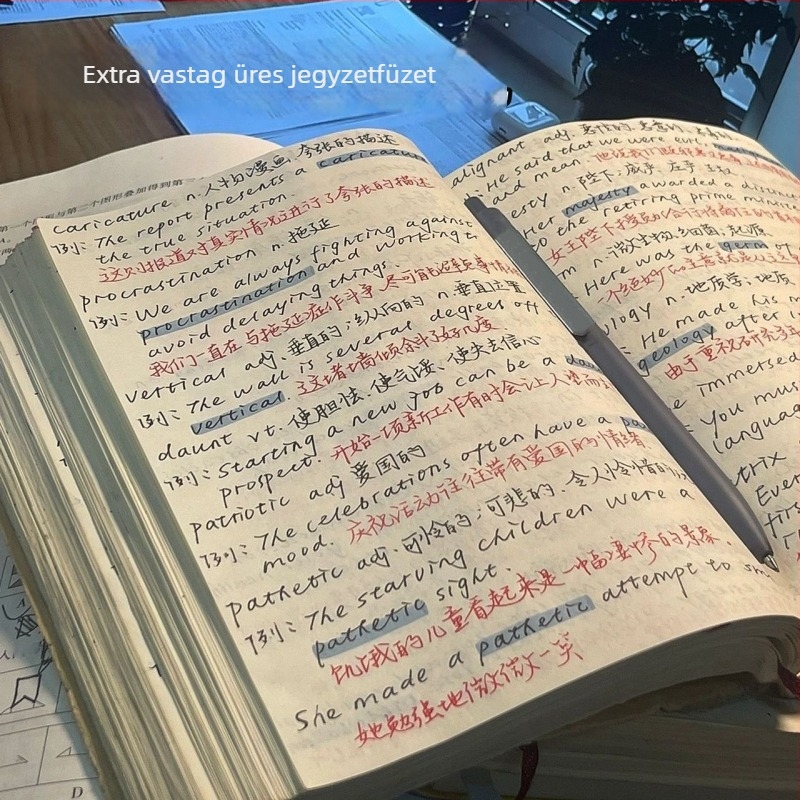 Extra vastag üres jegyzetfüzet
caricature n. 人物漫画, 夸张的描述
例: The report presents a caricature
the true situation.
这则报道对真实情况进行了夸张的描述
procrastination n. 拖延
例: We are always fighting against
procrastination and working t
avoid delaying things.
我们一直在与拖延症作斗争
vertical adj. 垂直的; 纵向的 n. 垂直位置
例: The wall is several degrees off
vertical. 这堵墙倾斜了好几度
daunt vt. 使胆怯, 使气馁, 使失去信心
例: Starting a new job can be a
prospect. 开始一项新工作有时会让人望而
patriotic adj 爱国的
例: The celebrations often have a
mood. 庆祝活动往往带有爱国的情绪
pathetic adj. 可怜的; 可悲的, 令人怜惜的
例: The starving children were a
pathetic sight.
饥饿的儿童看起来是一幅凄惨的景象.
She made a pathetic attempt to sm
她勉强地微微一笑
alignant adj.
: He said that we were evil,
and mean.
esty n. 陛下, 威严, 庄手
Her majesty awarded a distinct
to the retiring prime minis
m n. 微生物, 细菌; 起源
Here was the germ of
ology n. 地质学; 地质
He made his m
geology after
由于重视研究
e immersed
You must
languag
trix
Ever
firs
D